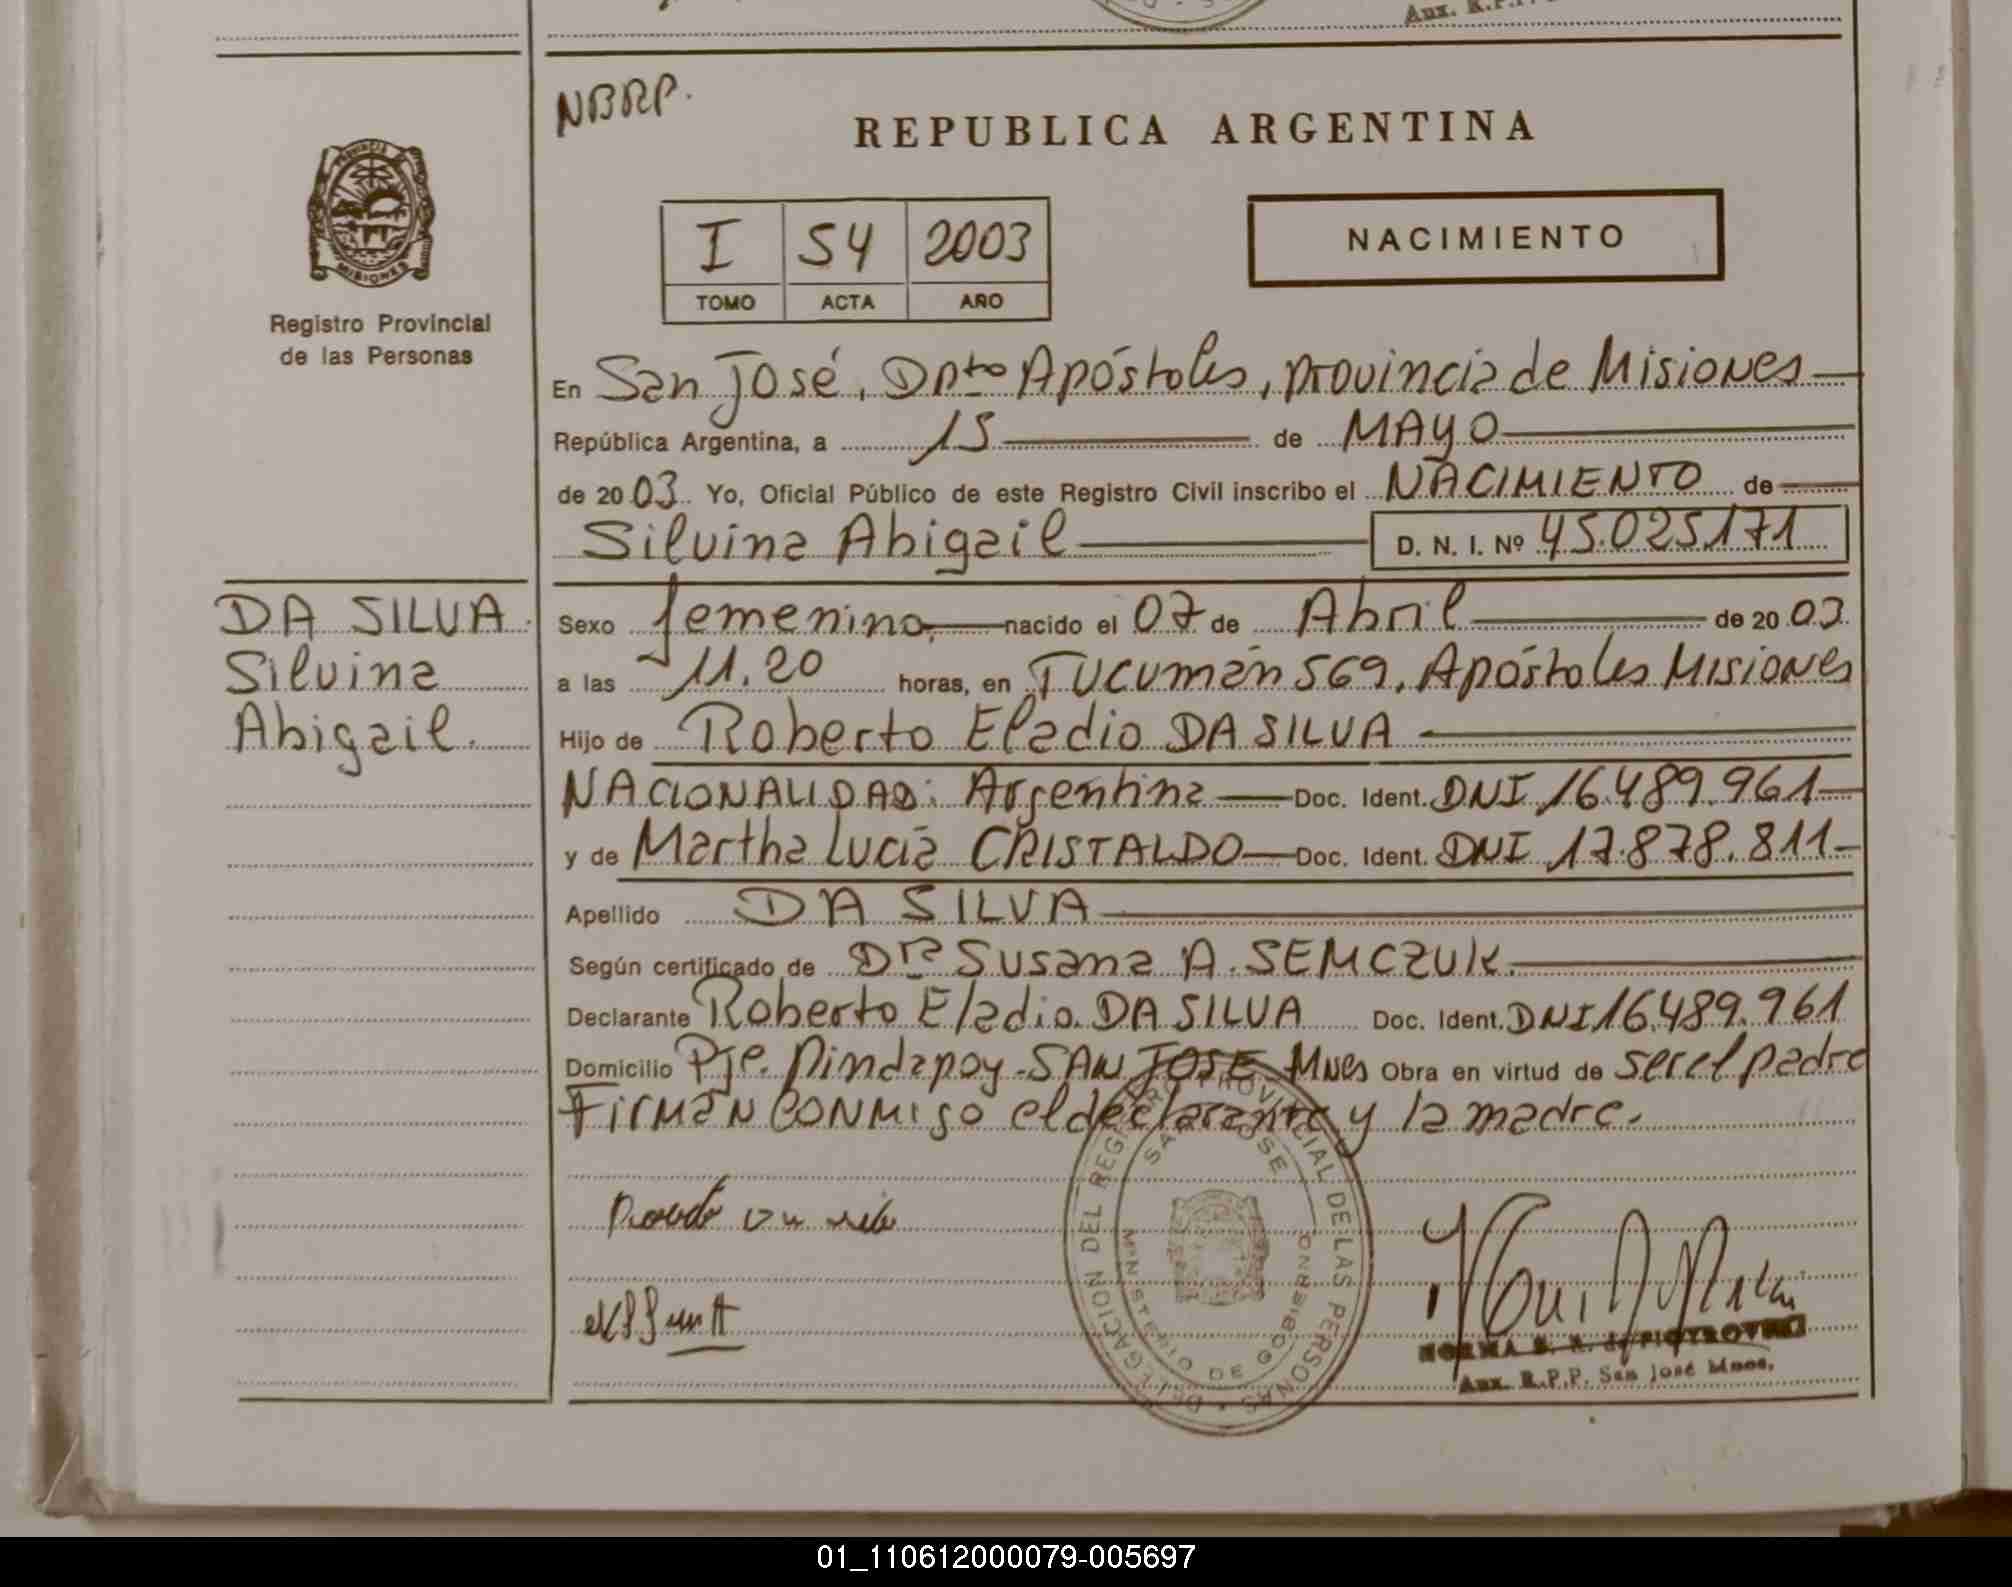 Aux. R.P.P.
NBRP.
REPUBLICA ARGENTINA
PROVINCIA DE
MISIONES
Registro Provincial
de las Personas
I 54 2003
TOMO ACTA AÑO
NACIMIENTO
En San José, Dpto Apóstoles, provincia de Misiones
República Argentina, a 15 de MAYO
de 2003. Yo, Oficial Público de este Registro Civil inscribo el NACIMIENTO de
Silvina Abigail D. N. I. Nº 45.025171
DA SILVA
Silvina
Abigail.
Sexo femenino, nacido el 07 de Abril de 2003.
a las 11.20 horas, en Tucumán 569, Apóstoles Misiones
Hijo de Roberto Eladio DA SILVA
NACIONALIDAD: Argentina Doc. Ident. DNI 16.489.961
y de Martha Lucía CRISTALDO Doc. Ident. DNI 17.878.811
Apellido DA SILVA
Según certificado de Dra Susana A. SEMCZUK.
Declarante Roberto Eladio DA SILVA Doc. Ident. DNI 16.489.961
Domicilio Pje. Pindapoy-SAN JOSE Mnes Obra en virtud de ser el padre
FIRMAN CONMIGO el declarante y la madre.
DELEGACION DEL REGISTRO PROVINCIAL DE LAS PERSONAS
SAN JOSE
MINISTERIO DE GOBIERNO
NORMA B. R. de PIOTROVSKI
Aux. R.P.P. San José Mnes.
01_110612000079-005697